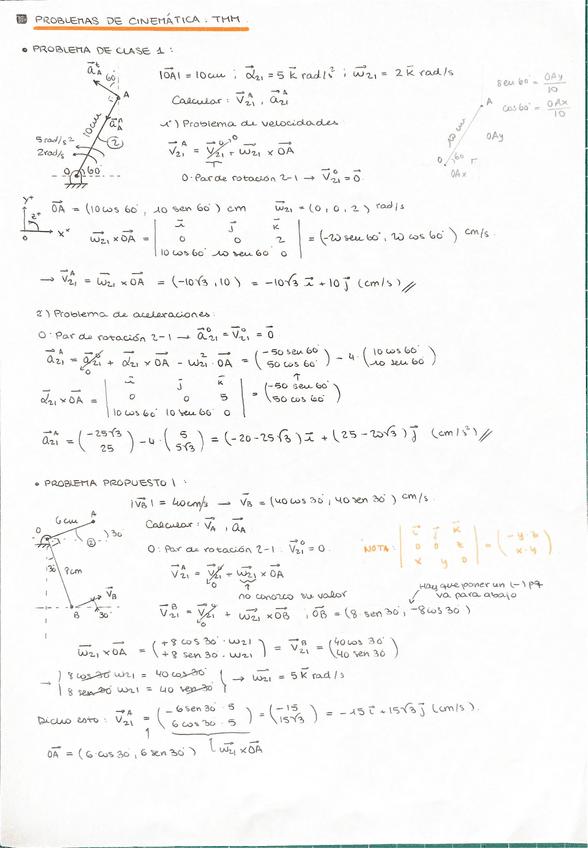 PROBLEMAS DE CINEMÁTICA: TMM
• PROBLEMA DE CLASE 1:
|OA| = 10cm ; α⃗₂₁ = 5 k⃗ rad/s² ; ω⃗₂₁ = 2 k⃗ rad/s
Calcular: V⃗₂₁ᴬ, a⃗₂₁ᴬ
1º) Problema de velocidades
V⃗₂₁ᴬ = V⃗₂₁⁰ + ω⃗₂₁ × OA
O: Par de rotación 2-1 → V⃗₂₁⁰ = 0⃗
a⃗ᴬᵗ
60°
A
a⃗ᴬⁿ
10cm
2
5 rad/s²
2 rad/s
O
60°
sen 60° = OAy/10
cos 60° = OAx/10
A
10 cm
OAy
O
60°
OAx
y⁺
z⁺
O
x⁺
OA = (10 cos 60°, 10 sen 60°) cm ω⃗₂₁ = (0, 0, 2) rad/s
ω⃗₂₁ × OA = | i⃗ j⃗ k⃗ |
0 0 2
10 cos 60° 10 sen 60° 0
= (-20 sen 60°, 20 cos 60°) cm/s.
→ V⃗₂₁ᴬ = ω⃗₂₁ × OA = (-10√3, 10) = -10√3 i⃗ + 10 j⃗ (cm/s)//
2º) Problema de aceleraciones:
O: Par de rotación 2-1 → a⃗₂₁⁰ = V⃗₂₁⁰ = 0⃗
a⃗₂₁ᴬ = a⃗₂₁⁰ + α⃗₂₁ × OA - ω²₂₁ · OA = (-50 sen 60° / 50 cos 60°) - 4 · (10 cos 60° / 10 sen 60°)
α⃗₂₁ × OA = | i⃗ j⃗ k⃗ |
0 0 5
10 cos 60° 10 sen 60° 0
= (-50 sen 60° / 50 cos 60°)
a⃗₂₁ᴬ = (-25√3 / 25) - 4 · (5 / 5√3) = (-20-25√3) i⃗ + (25-20√3) j⃗ (cm/s²)//
• PROBLEMA PROPUESTO 1:
|V⃗B| = 40 cm/s → V⃗B = (40 cos 30°, 40 sen 30°) cm/s.
Calcular: V⃗A, a⃗A
O: Par de rotación 2-1: V⃗₂₁⁰ = 0.
V⃗₂₁ᴬ = V⃗₂₁⁰ + ω⃗₂₁ × OA
no conozco su valor
6 cm
A
O
2
30°
30°
8cm
V⃗B
B
30°
NOTA: | i⃗ j⃗ k⃗ |
0 0 z
x y 0
= (-y·z / x·y)
Hay que poner un (-) pq
va para abajo
V⃗₂₁ᴮ = V⃗₂₁⁰ + ω⃗₂₁ × OB ; OB = (8 · sen 30°, -8 cos 30°)
ω⃗₂₁ × OA = (+8 cos 30° · ω₂₁ / +8 sen 30° · ω₂₁) = V⃗₂₁ᴮ = (40 cos 30° / 40 sen 30°)
→ { 8 cos 30° ω₂₁ = 40 cos 30°
8 sen 30° ω₂₁ = 40 sen 30° } → ω⃗₂₁ = 5 k⃗ rad/s
Dicho esto: V⃗₂₁ᴬ = (-6 sen 30° · 5 / 6 cos 30° · 5) = (-15 / 15√3) = -15 i⃗ + 15√3 j⃗ (cm/s).
OA = (6 · cos 30°, 6 sen 30°) ω⃗₂₁ × OA